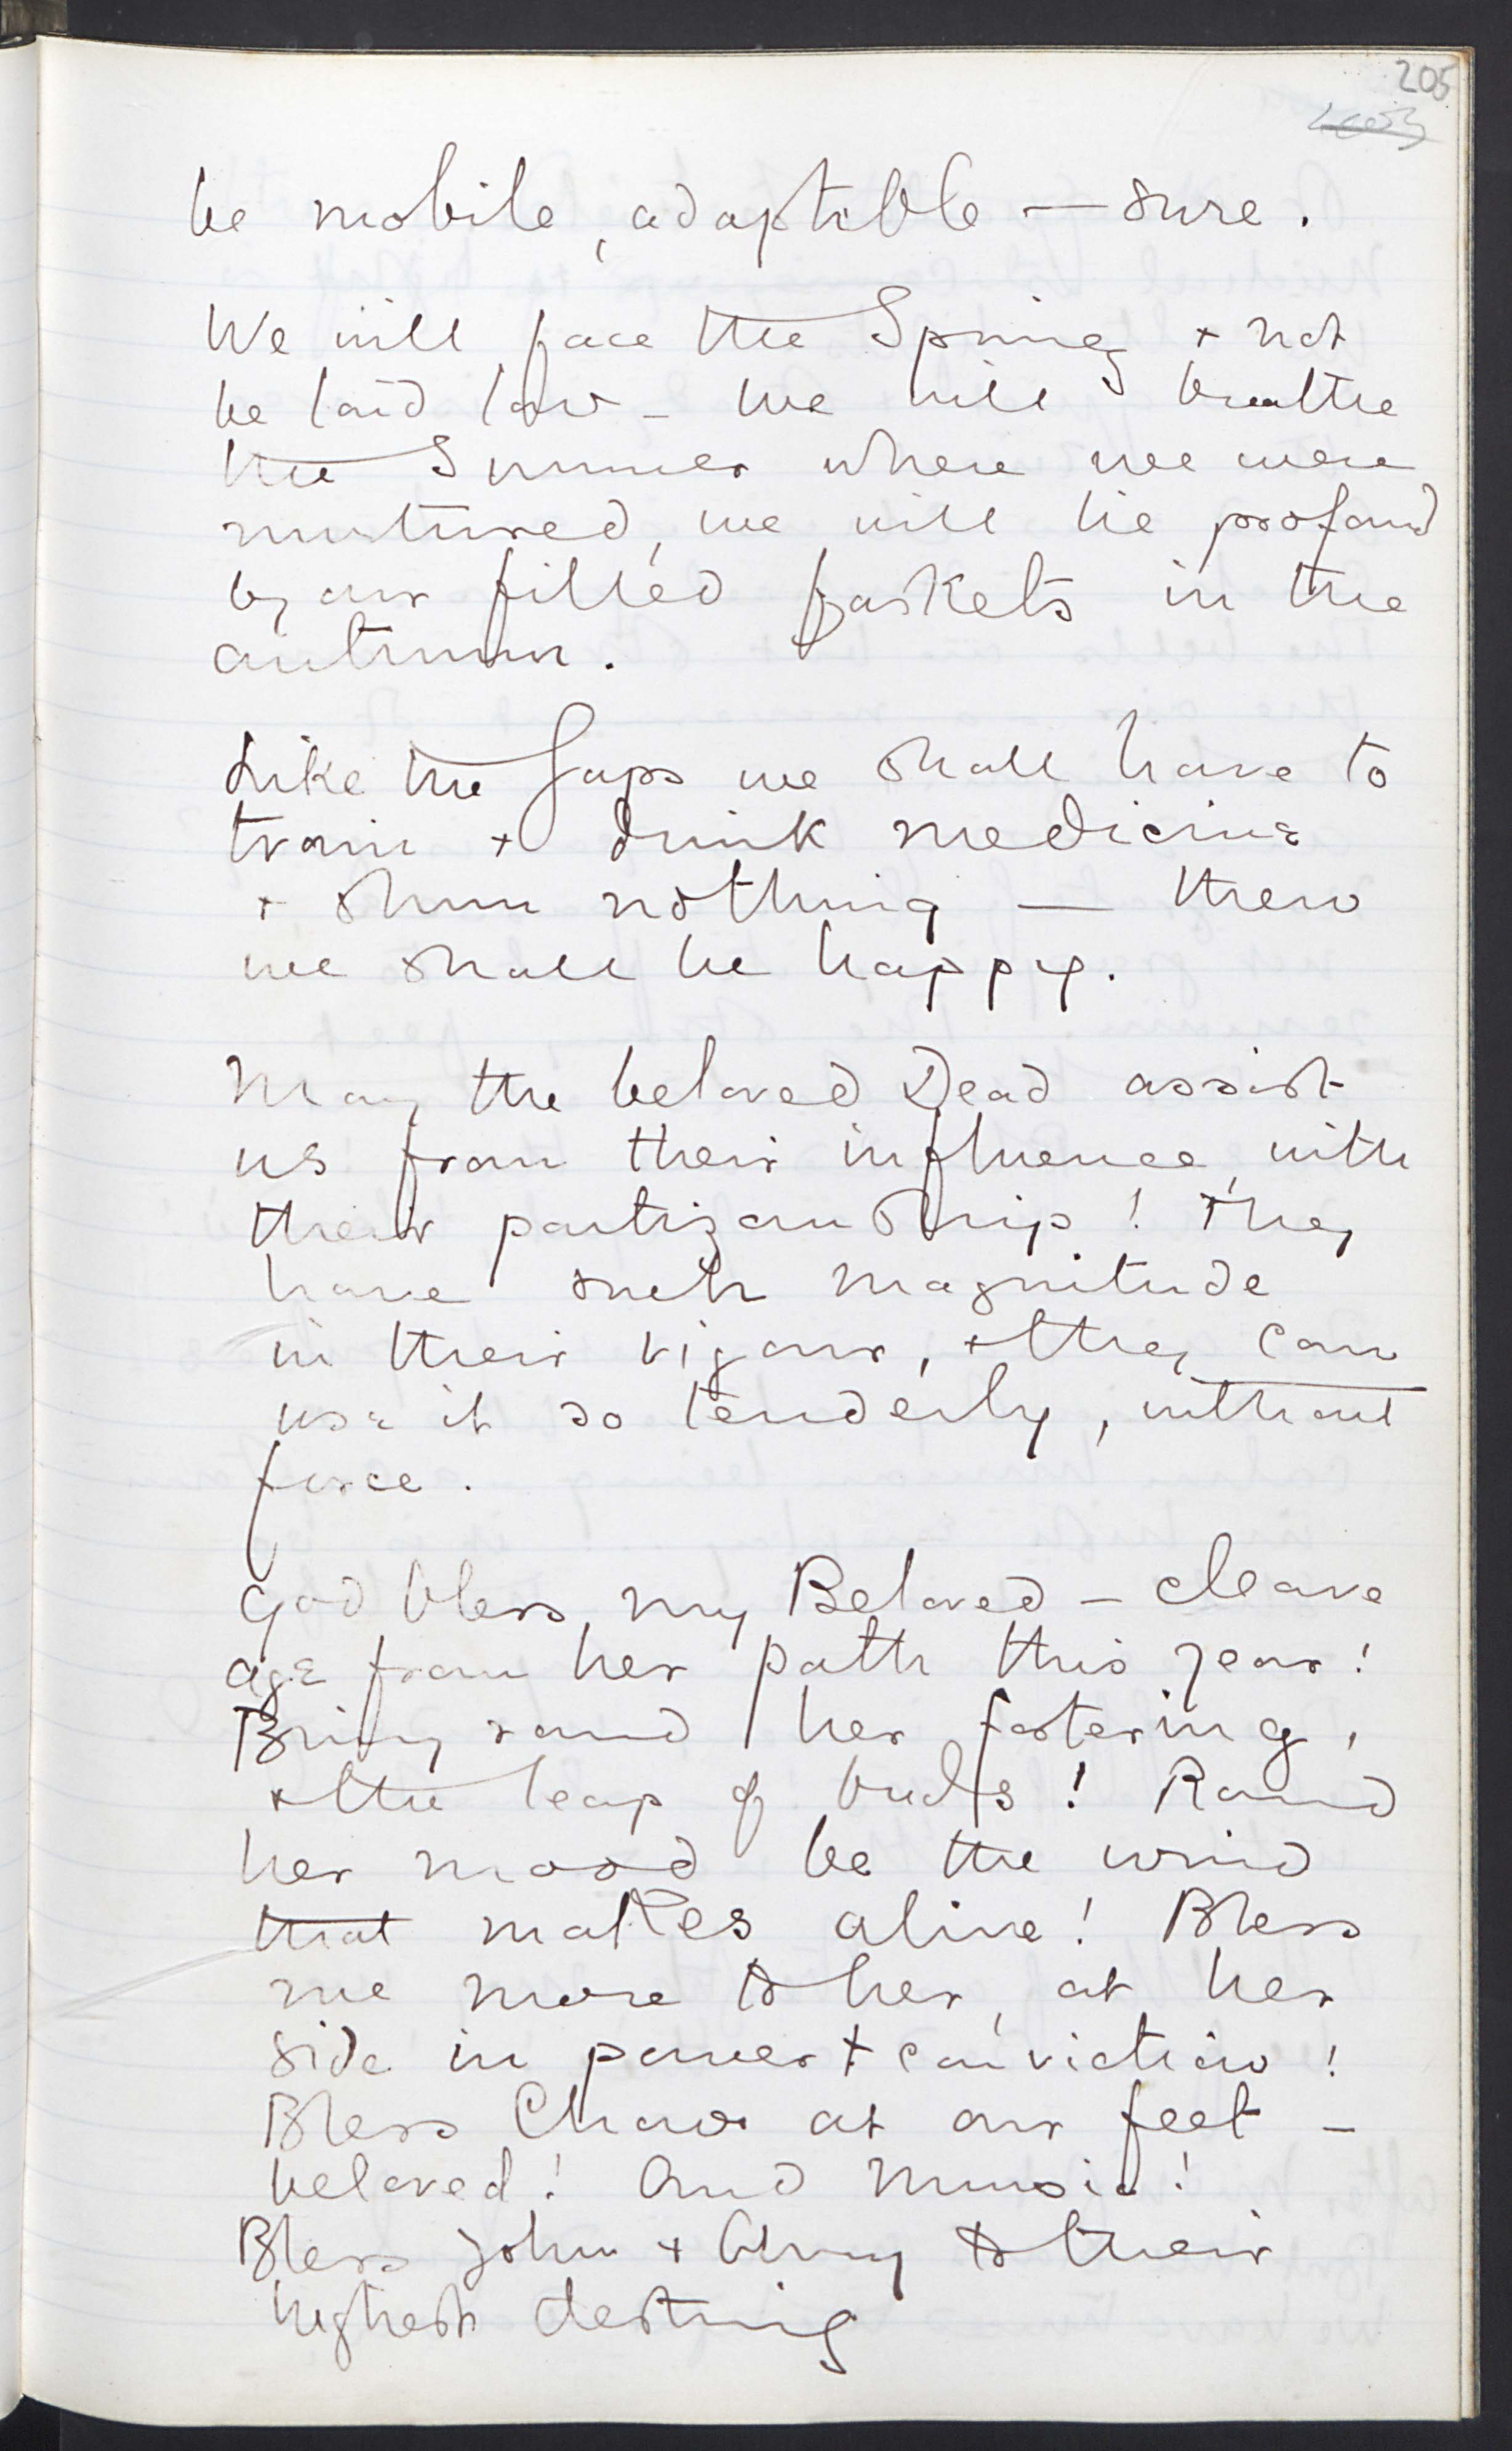 205
be mobile, adaptable — sure.
We will face the Spring + not
be laid low – we will breathe
the Summer where we were
nurtured, we will be profound
by our filled baskets in the
autumn.
Like the Japs we shall have to
train + drink medicine
+ shun nothing — then
we shall be happy.
May the beloved Dead assist
us from their influence, with
their partizanship! They
have such magnitude
in their vigour, + they can
use it so tenderly, without
force.
God bless my Beloved – cleave
age from her path this year!
Bring round her fostering,
+ the leap of buds! Round
her mood be the wind
that makes alive! Bless
me more to her, at her
side in power + conviction!
Bless Chow at our feet –
beloved! And Music!
Bless John + Amy to their
highest destiny